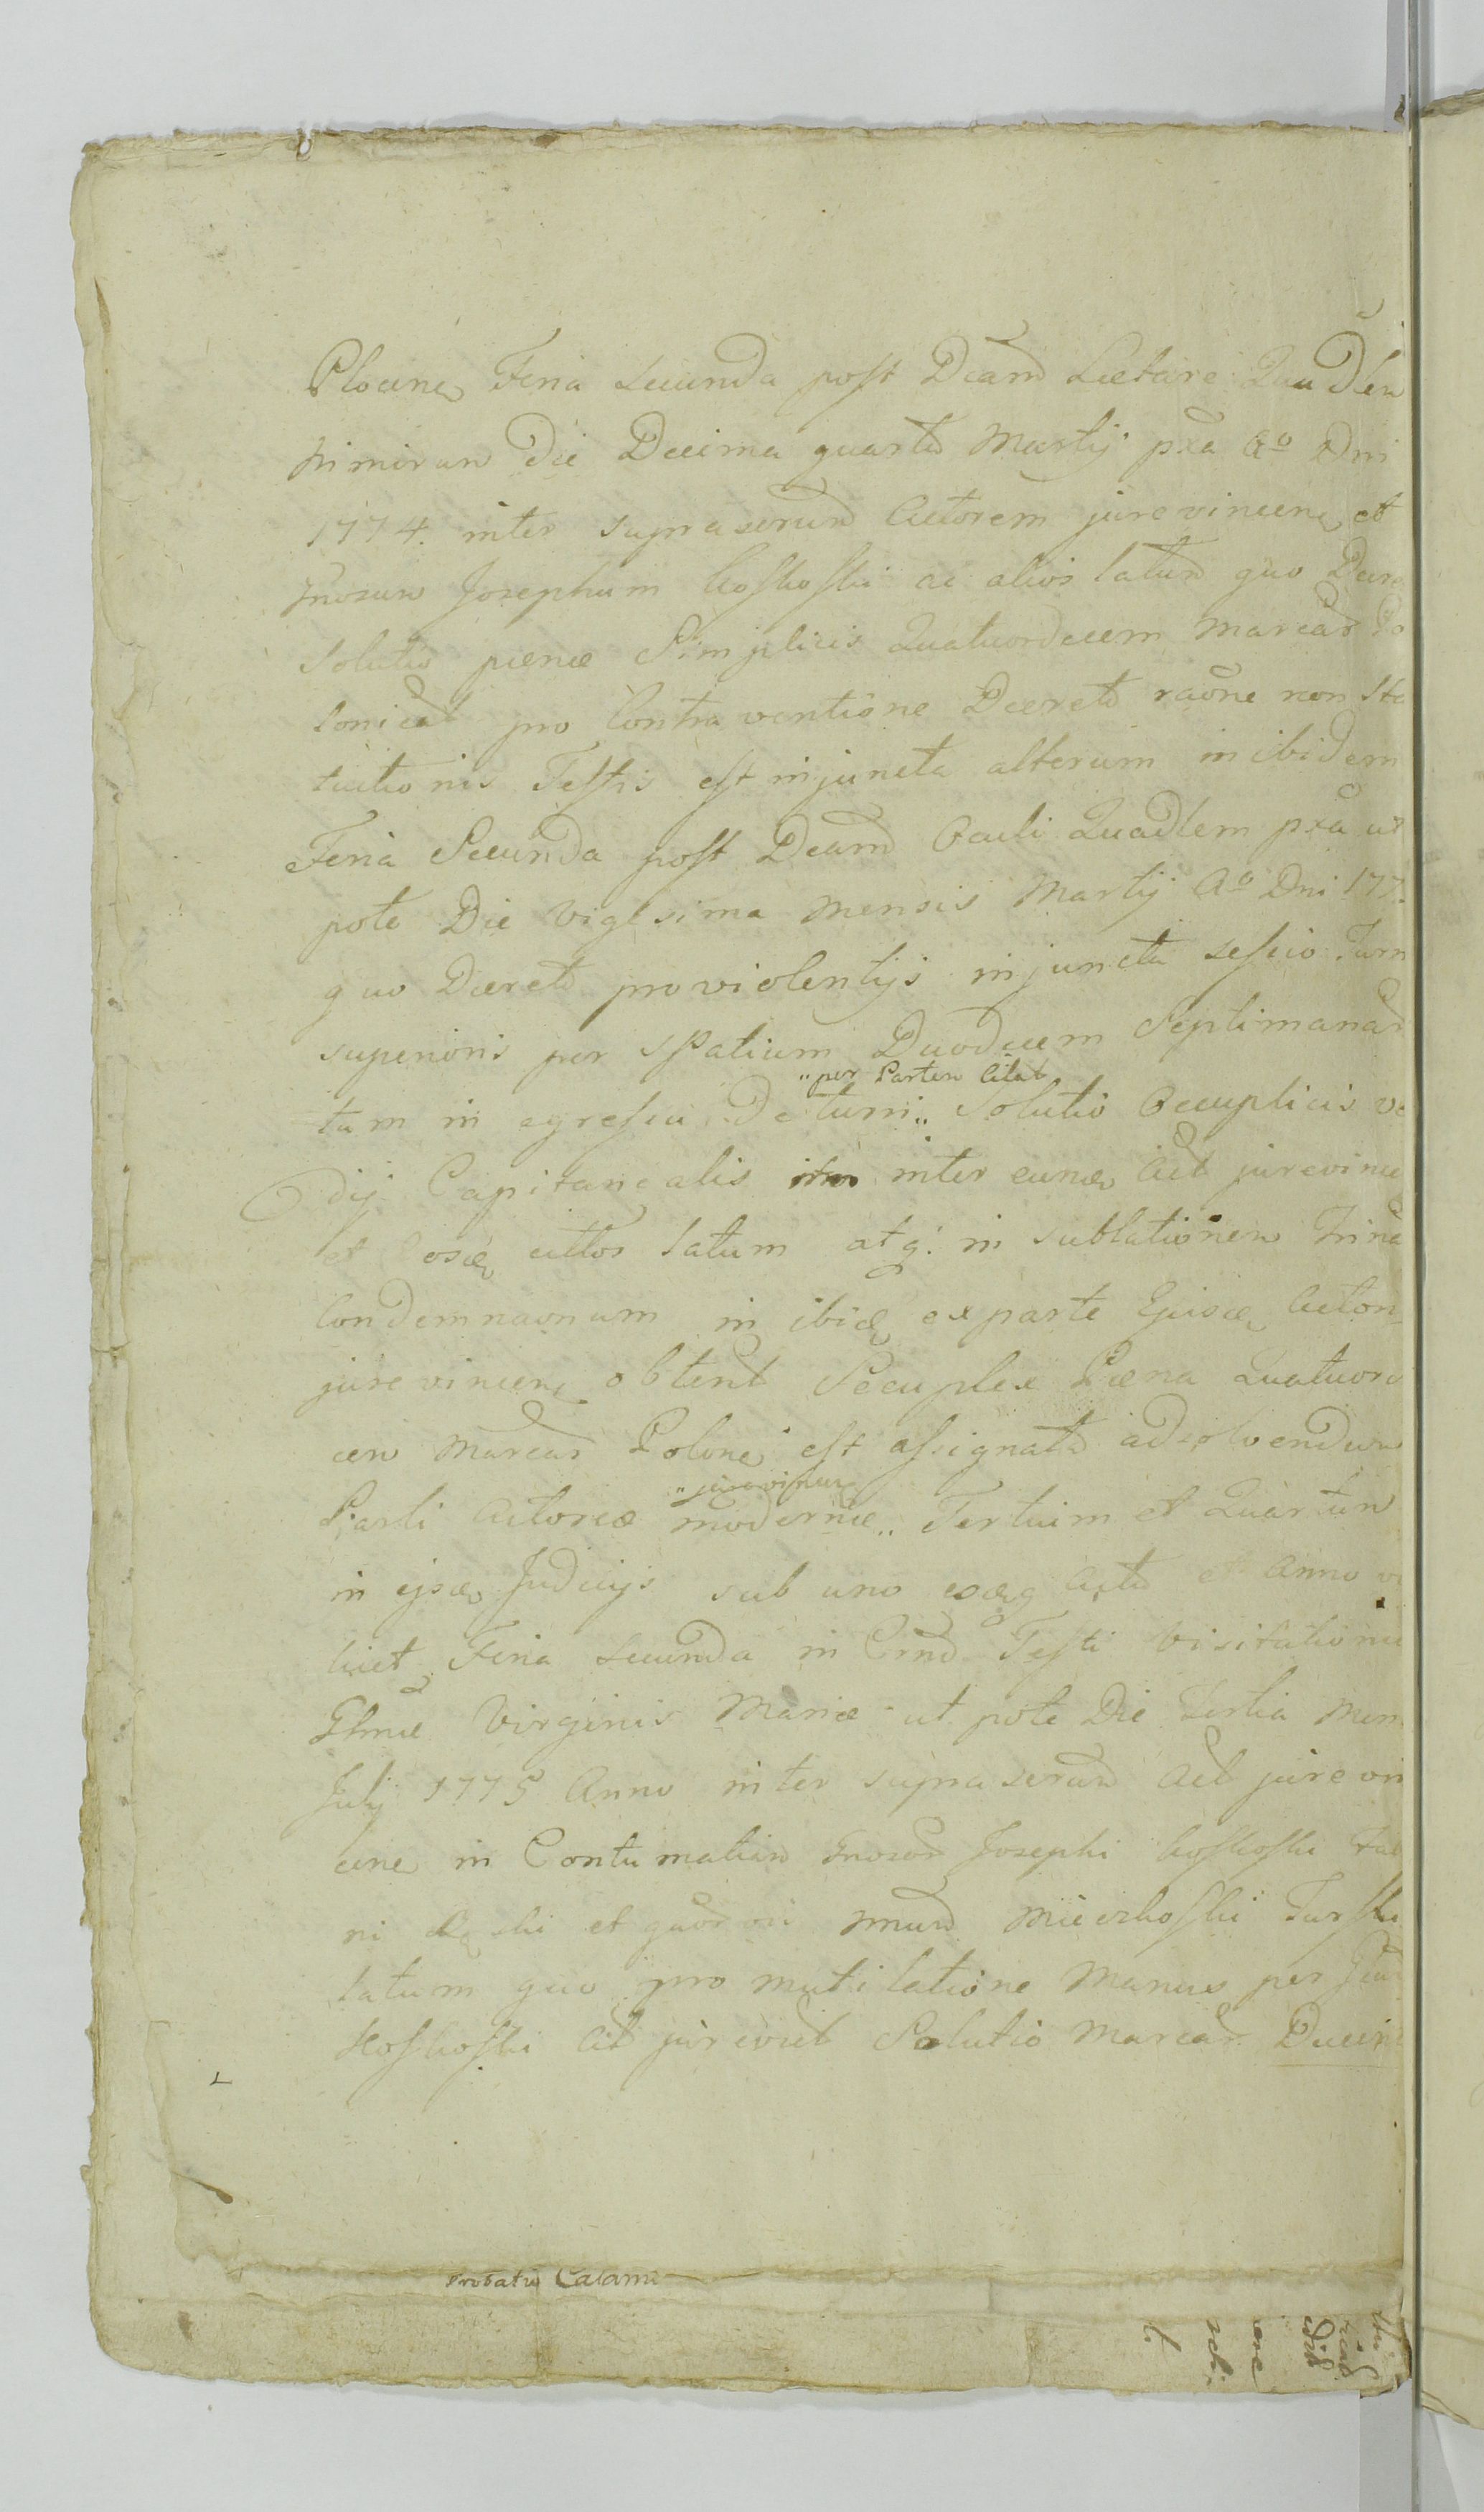 Plocen Feria Secunda post Dcam Laetare Quadlem
nimirum Die Decima quarta Martij pxa Ao Dni
1774. inter suprascrum Actorem jurevincen et
Gnosum Josephum Koskoski ac alios latum quo Decre
Solutio paenae Simplicis Quatuordecem Marcar Po
lonical pro Contraventione Decreto raone non Sta
tuitionis Testis est injuncta alterum in ibidem
Feria Secunda post Dcam Oculi Quadlem pxa ut
pote Die Vigesima Mensis Martij Ao Dni 177
quo Decreto pro violentijs injuncta sessio Turri
superioris per spatium Duodecem Septimanar
"per Partem Citat
tum in egressu De turri" Solutio Occuplicis va
dij Capitanealis inter eund Act jurevince
et eosd cittos latum atq: in sublationem Trina
Condemnaonum in ibid ex parte Ejusd Acton
jurevincen obtent Secuplex Paena Quatuord
cem Marcar Polon est assignata adsolvendum
"jurevincen
Parti Actoreae modernae" Tertium et Quartum
in ijsd Judicijs sub uno eodq Actu et Anno vi
licet Feria Secunda in Crno Festi Visitationis
Glmae Virginis Mariae ut pote Die Tertia Men
Julij 1775 Anno inter suprascrum Act jurevin
cen in Contumatiam Gnosor Josephi Koskoski
ni et Mierzkoski Turski
latum quo pro mutilatione Manus per
Koskoski Act jurevict Solutio Marcar Ducen
Probatio Calami